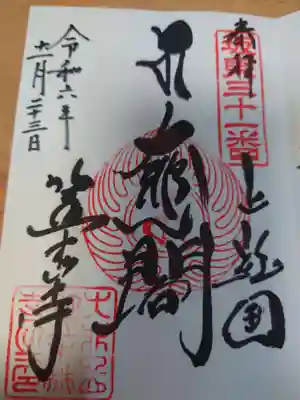 奉拝
坂東三十一番
上総国
大悲閣
笠森寺
令和六年
十一月二十三日